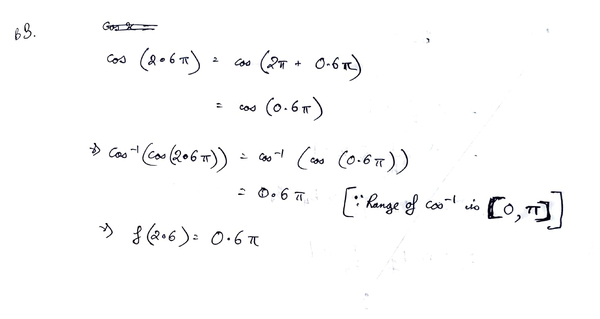 63.
cos (2.6π) = cos (2π + 0.6π)
= cos (0.6π)
⇒ cos⁻¹(cos(2.6π)) = cos⁻¹ (cos (0.6π))
= 0.6π [∵ Range of cos⁻¹ is [0, π]]
⇒ f(2.6) = 0.6π